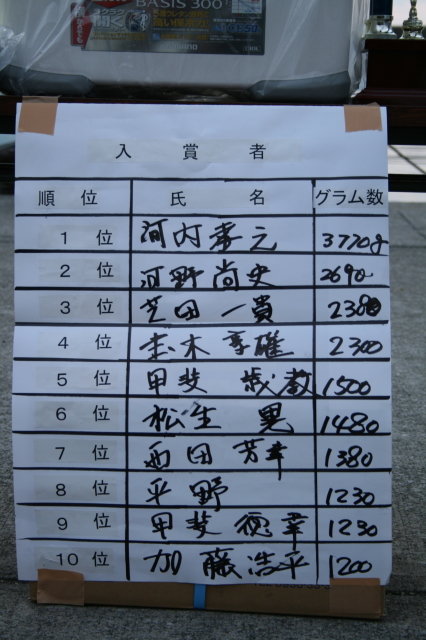 BASIS 300
入賞者
順位 氏名 グラム数
1位 河内孝元 3770g
2位 河野尚史 2690
3位 芝田一貴 2380
4位 2300
5位 甲斐 1500
6位 松生 1480
7位 西田芳幸 1380
8位 平野 1230
9位 甲斐徳幸 1230
10位 加藤浩平 1200